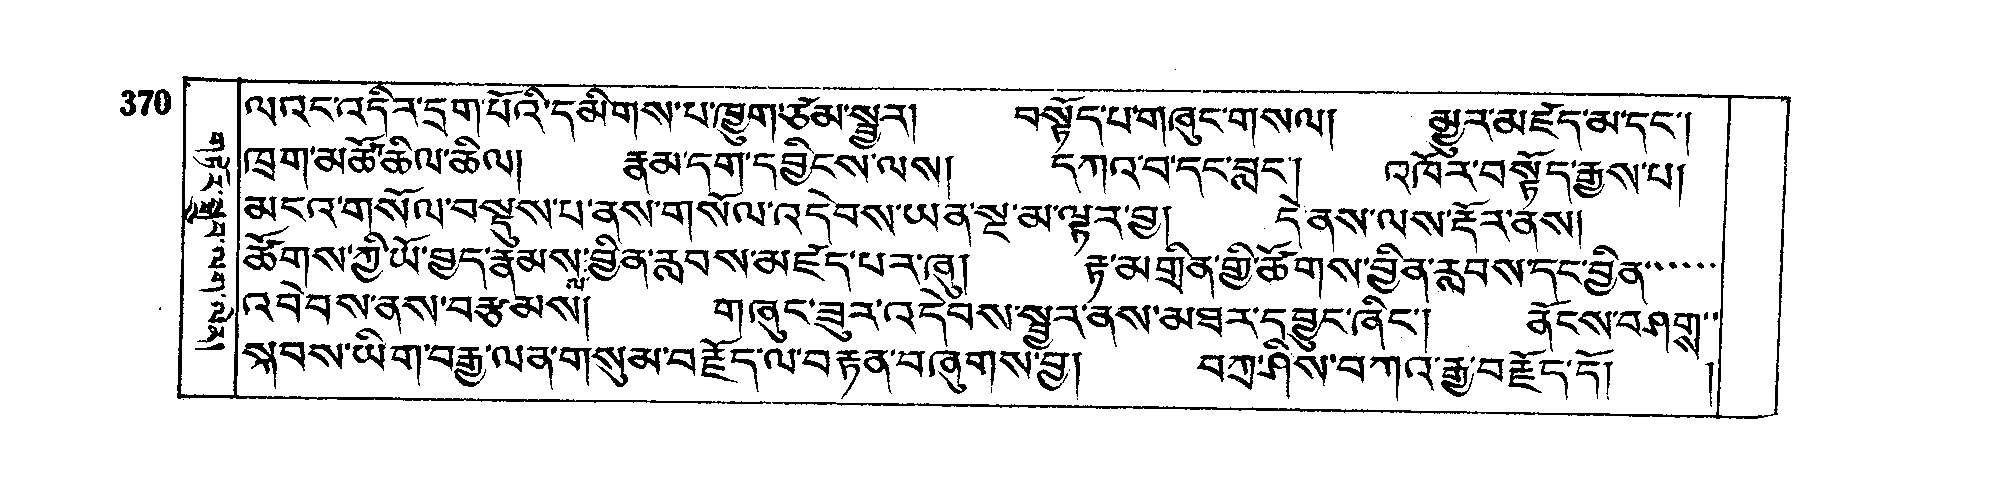 370
གཏོར་སྒྲུབ་ལག་ལེན།
ལ་འང་འདིར་དྲག་པོའི་དམིགས་པ་ཁྱུག་ཙམ་སྦྱར། བསྟོད་པ་གཞུང་གསལ། མྱུར་མཛོད་མ་དང་།
ཁྲག་མཚོ་ཆིལ་ཆིལ། རྣམ་དག་དབྱིངས་ལས། དཀའ་བ་དང་བླང་། འཁོར་བསྟོད་རྒྱས་པ།
མངའ་གསོལ་བསྡུས་པ་ནས་གསོལ་འདེབས་ཡན་སྔ་མ་ལྟར་བྱ། དེ་ནས་ལས་རྡོར་ནས།
ཚོགས་ཀྱི་ཡོ་བྱད་རྣམས་བྱིན་རླབས་མཛད་པར་ཞུ། རྟ་མགྲིན་གྱི་ཚོགས་བྱིན་རླབས་དང་བྱིན་་་་་་
འབེབས་ནས་བརྩམས། གཞུང་ཟུར་འདེབས་སྦྱར་ནས་མཐར་དབྱུང་ཞིང་། ནོངས་བཤགས་་
སྐབས་ཡིག་བརྒྱ་ལན་གསུམ་བརྗོད་ལ་བརྟན་བཞུགས་བྱ། བཀྲ་ཤིས་བཀའ་རྒྱ་བརྗོད་དོ། །